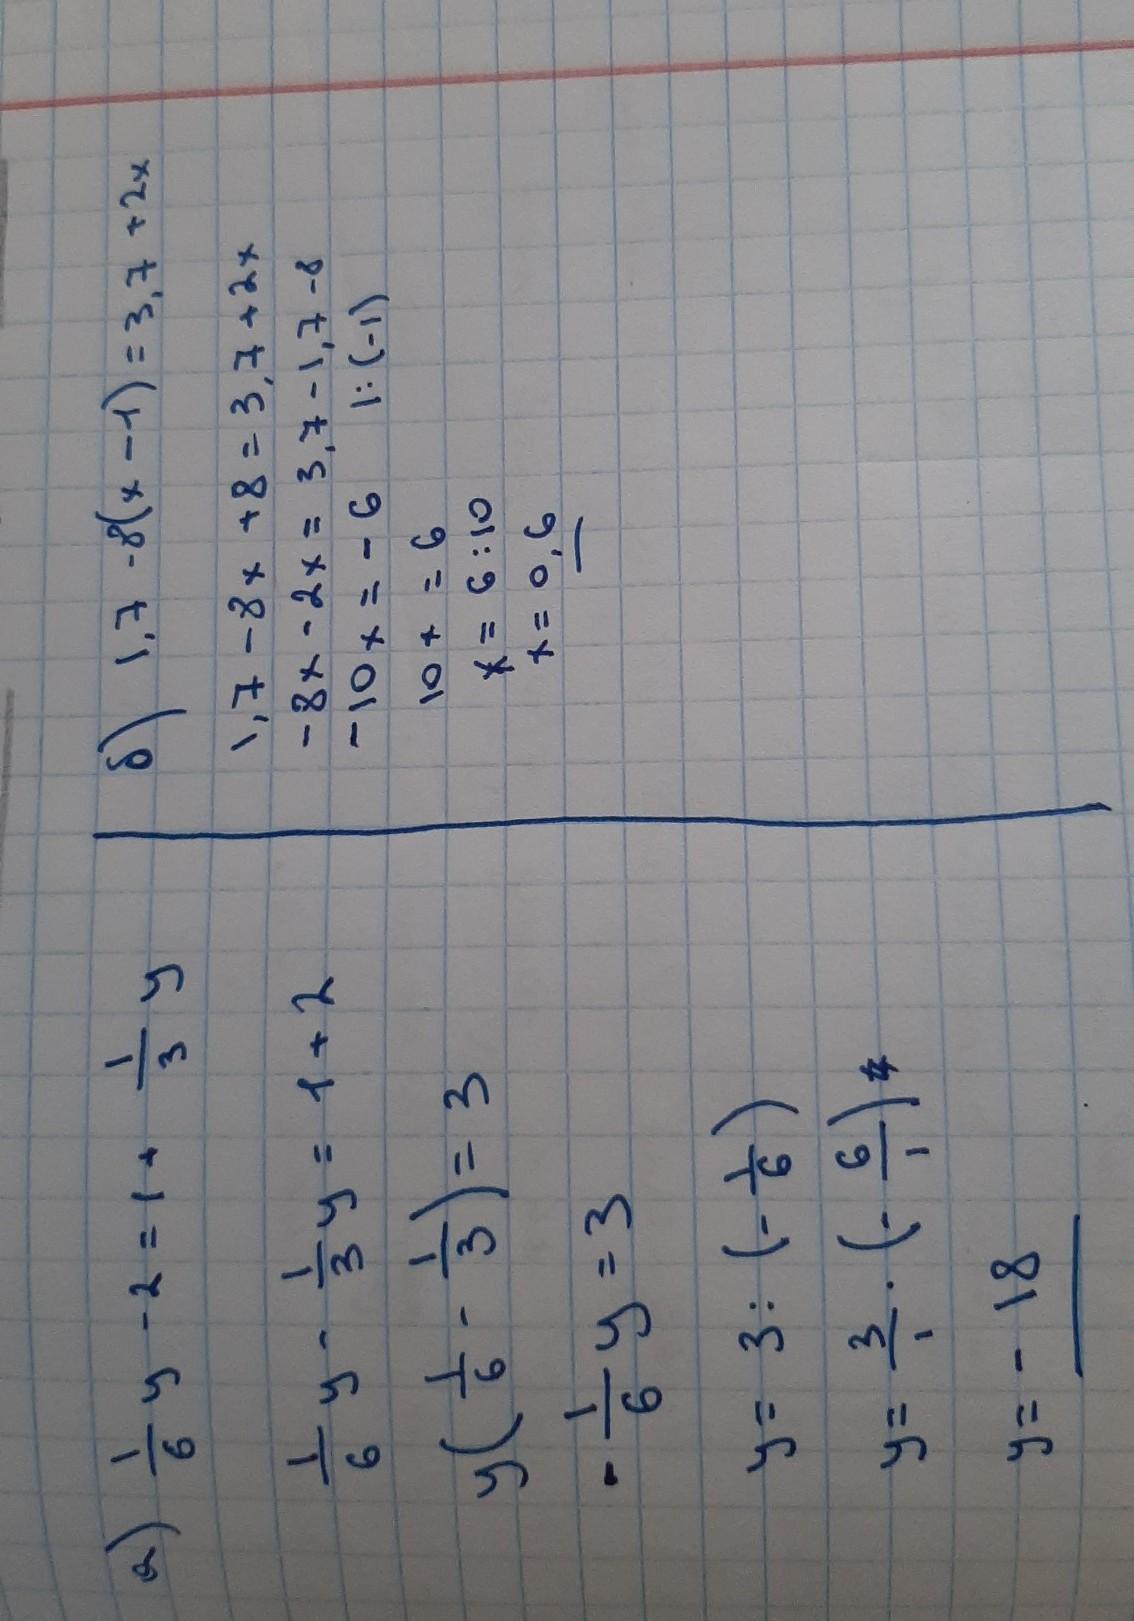 а) 1/6 y - 2 = 1 + 1/3 y
1/6 y - 1/3 y = 1 + 2
y(1/6 - 1/3) = 3
- 1/6 y = 3
y = 3 : (- 1/6)
y = 3/1 · (- 6/1)
y = - 18
б) 1,7 - 8(x - 1) = 3,7 + 2x
1,7 - 8x + 8 = 3,7 + 2x
-8x - 2x = 3,7 - 1,7 - 8
-10x = - 6 |:(-1)
10x = 6
x = 6 : 10
x = 0,6